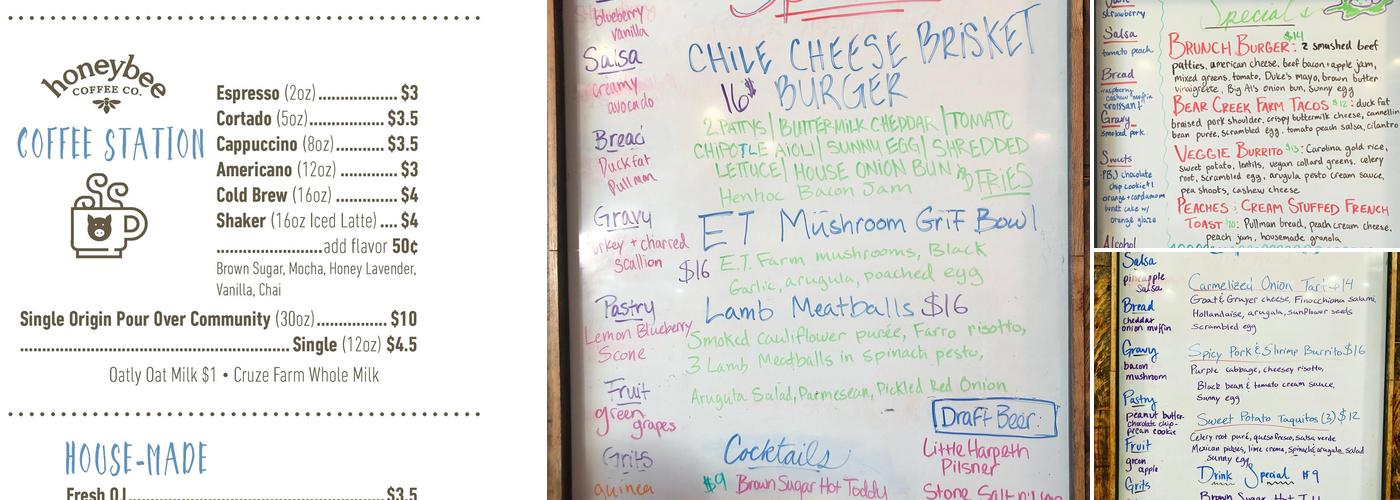 honeybee
COFFEE CO.
COFFEE STATION
Espresso (2oz)..................$3
Cortado (5oz)..................$3.5
Cappuccino (8oz)............$3.5
Americano (12oz)..............$3
Cold Brew (16oz)...............$4
Shaker (16oz Iced Latte)....$4
........................add flavor 50¢
Brown Sugar, Mocha, Honey Lavender,
Vanilla, Chai
Single Origin Pour Over Community (30oz)................$10
.................................................................Single (12oz) $4.5
Oatly Oat Milk $1 • Cruze Farm Whole Milk
HOUSE-MADE
Fresh OJ..........................................................$3.5
blueberry
vanilla
Salsa
creamy
avocado
Bread
Duck fat
Pullman
Gravy
turkey + charred
scallion
Pastry
Lemon Blueberry
Scone
Fruit
green
grapes
Grits
guinea
CHILE CHEESE BRISKET
16$ BURGER
2 PATTYS | BUTTERMILK CHEDDAR | TOMATO
CHIPOTLE AIOLI | SUNNY EGG | SHREDDED
LETTUCE | HOUSE ONION BUN AND FRIES
Henhoc Bacon Jam
ET Mushroom Grit Bowl
$16 E.T. Farm mushrooms, Black
Garlic, arugula, poached egg
Lamb Meatballs $16
Smoked cauliflower purée, Farro risotto,
3 Lamb Meatballs in spinach pesto,
Arugula Salad, Parmesan, Pickled Red Onion
Draft Beer:
Little Harpeth
Pilsner
Cocktails
$9 Brown Sugar Hot Toddy
strawberry
Salsa
tomato peach
Bread
raspberry
cashew muffin
croissant
Gravy
smoked pork
Sweets
-PBJ chocolate
chip cookie
orange + cardamom
bundt cake w/
orange glaze
Alcohol
Specials
BRUNCH BURGER $14: 2 smashed beef
patties, american cheese, beef bacon + apple jam,
mixed greens, tomato, Duke's mayo, brown butter
vinaigrette, Big Al's onion bun, sunny egg
BEAR CREEK FARM TACOS $12: duck fat
braised pork shoulder, crispy buttermilk cheese, cannellini
bean purée, scrambled egg, tomato peach salsa, cilantro
VEGGIE BURRITO $13: Carolina gold rice,
sweet potato, lentils, vegan collard greens, celery
root, scrambled egg, arugula pesto cream sauce,
pea shoots, cashew cheese
PEACHES + CREAM STUFFED FRENCH
TOAST $10: Pullman bread, peach cream cheese,
peach jam, housemade granola
Salsa
pineapple
salsa
Bread
cheddar
onion muffin
Gravy
bacon
mushroom
Pastry
peanut butter-
chocolate chip-
pecan cookie
Fruit
green
apple
Grits
Carmelized Onion Tart $14
Goat & Gruyer cheese, Finocchiona salami,
Hollandaise, arugula, sunflower seeds
Scrambled egg
Spicy Pork & Shrimp Burrito $16
Purple cabbage, cheesey risotto,
Black bean & tomato cream sauce,
Sunny egg
Sweet Potato Taquitos (3) $12
Celery root puré, queso fresco, salsa verde
Mexican potatos, lime crema, spinach, arugula, salad
sunny egg
Drink Special #9